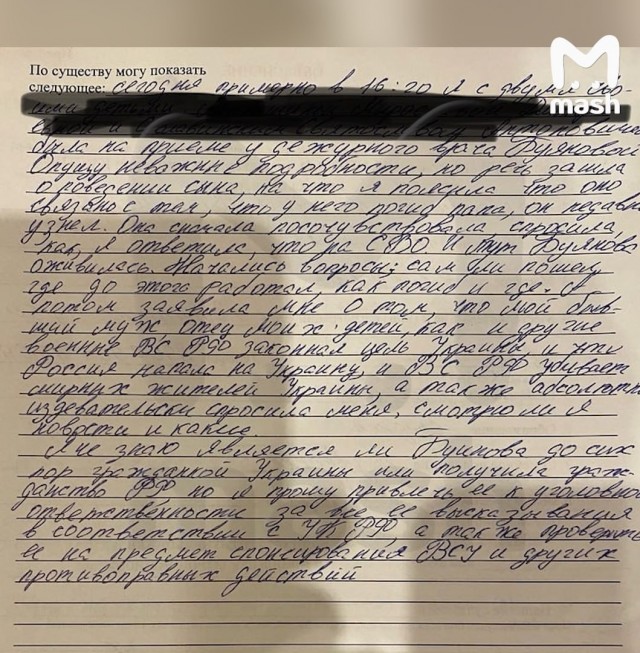 mash
По существу могу показать
следующее: сегодня примерно в 16:20 я с двумя мо-
ими детьми
и
была на приеме у дежурного врача Буяновой
Опущу неважные подробности, но речь зашла
о поведении сына, на что я пояснила что оно
связано с тем, что у него погиб папа, он недавно
узнал. Она сначала посочувствовала, спросила
как, я ответила, что на СВО и тут Буянова
оживилась. Начались вопросы: сам ли пошел,
где до этого работал, как погиб и где. А
потом заявила мне о том, что мой быв-
ший муж отец моих детей, как и другие
военные ВС РФ законная цель Украины и что
Россия напала на Украину, и ВС РФ убивает
мирных жителей Украины, а так же абсолютно
издевательски спросила меня, смотрю ли я
новости и какие.
Я не знаю является ли Буянова до сих
пор гражданкой Украины или получила граж-
данство РФ но я прошу привлечь ее к уголовной
ответственности за все ее высказывания
в соответствии с УК РФ, а так же проверить
ее на предмет спонсирования ВСУ и других
противоправных действий